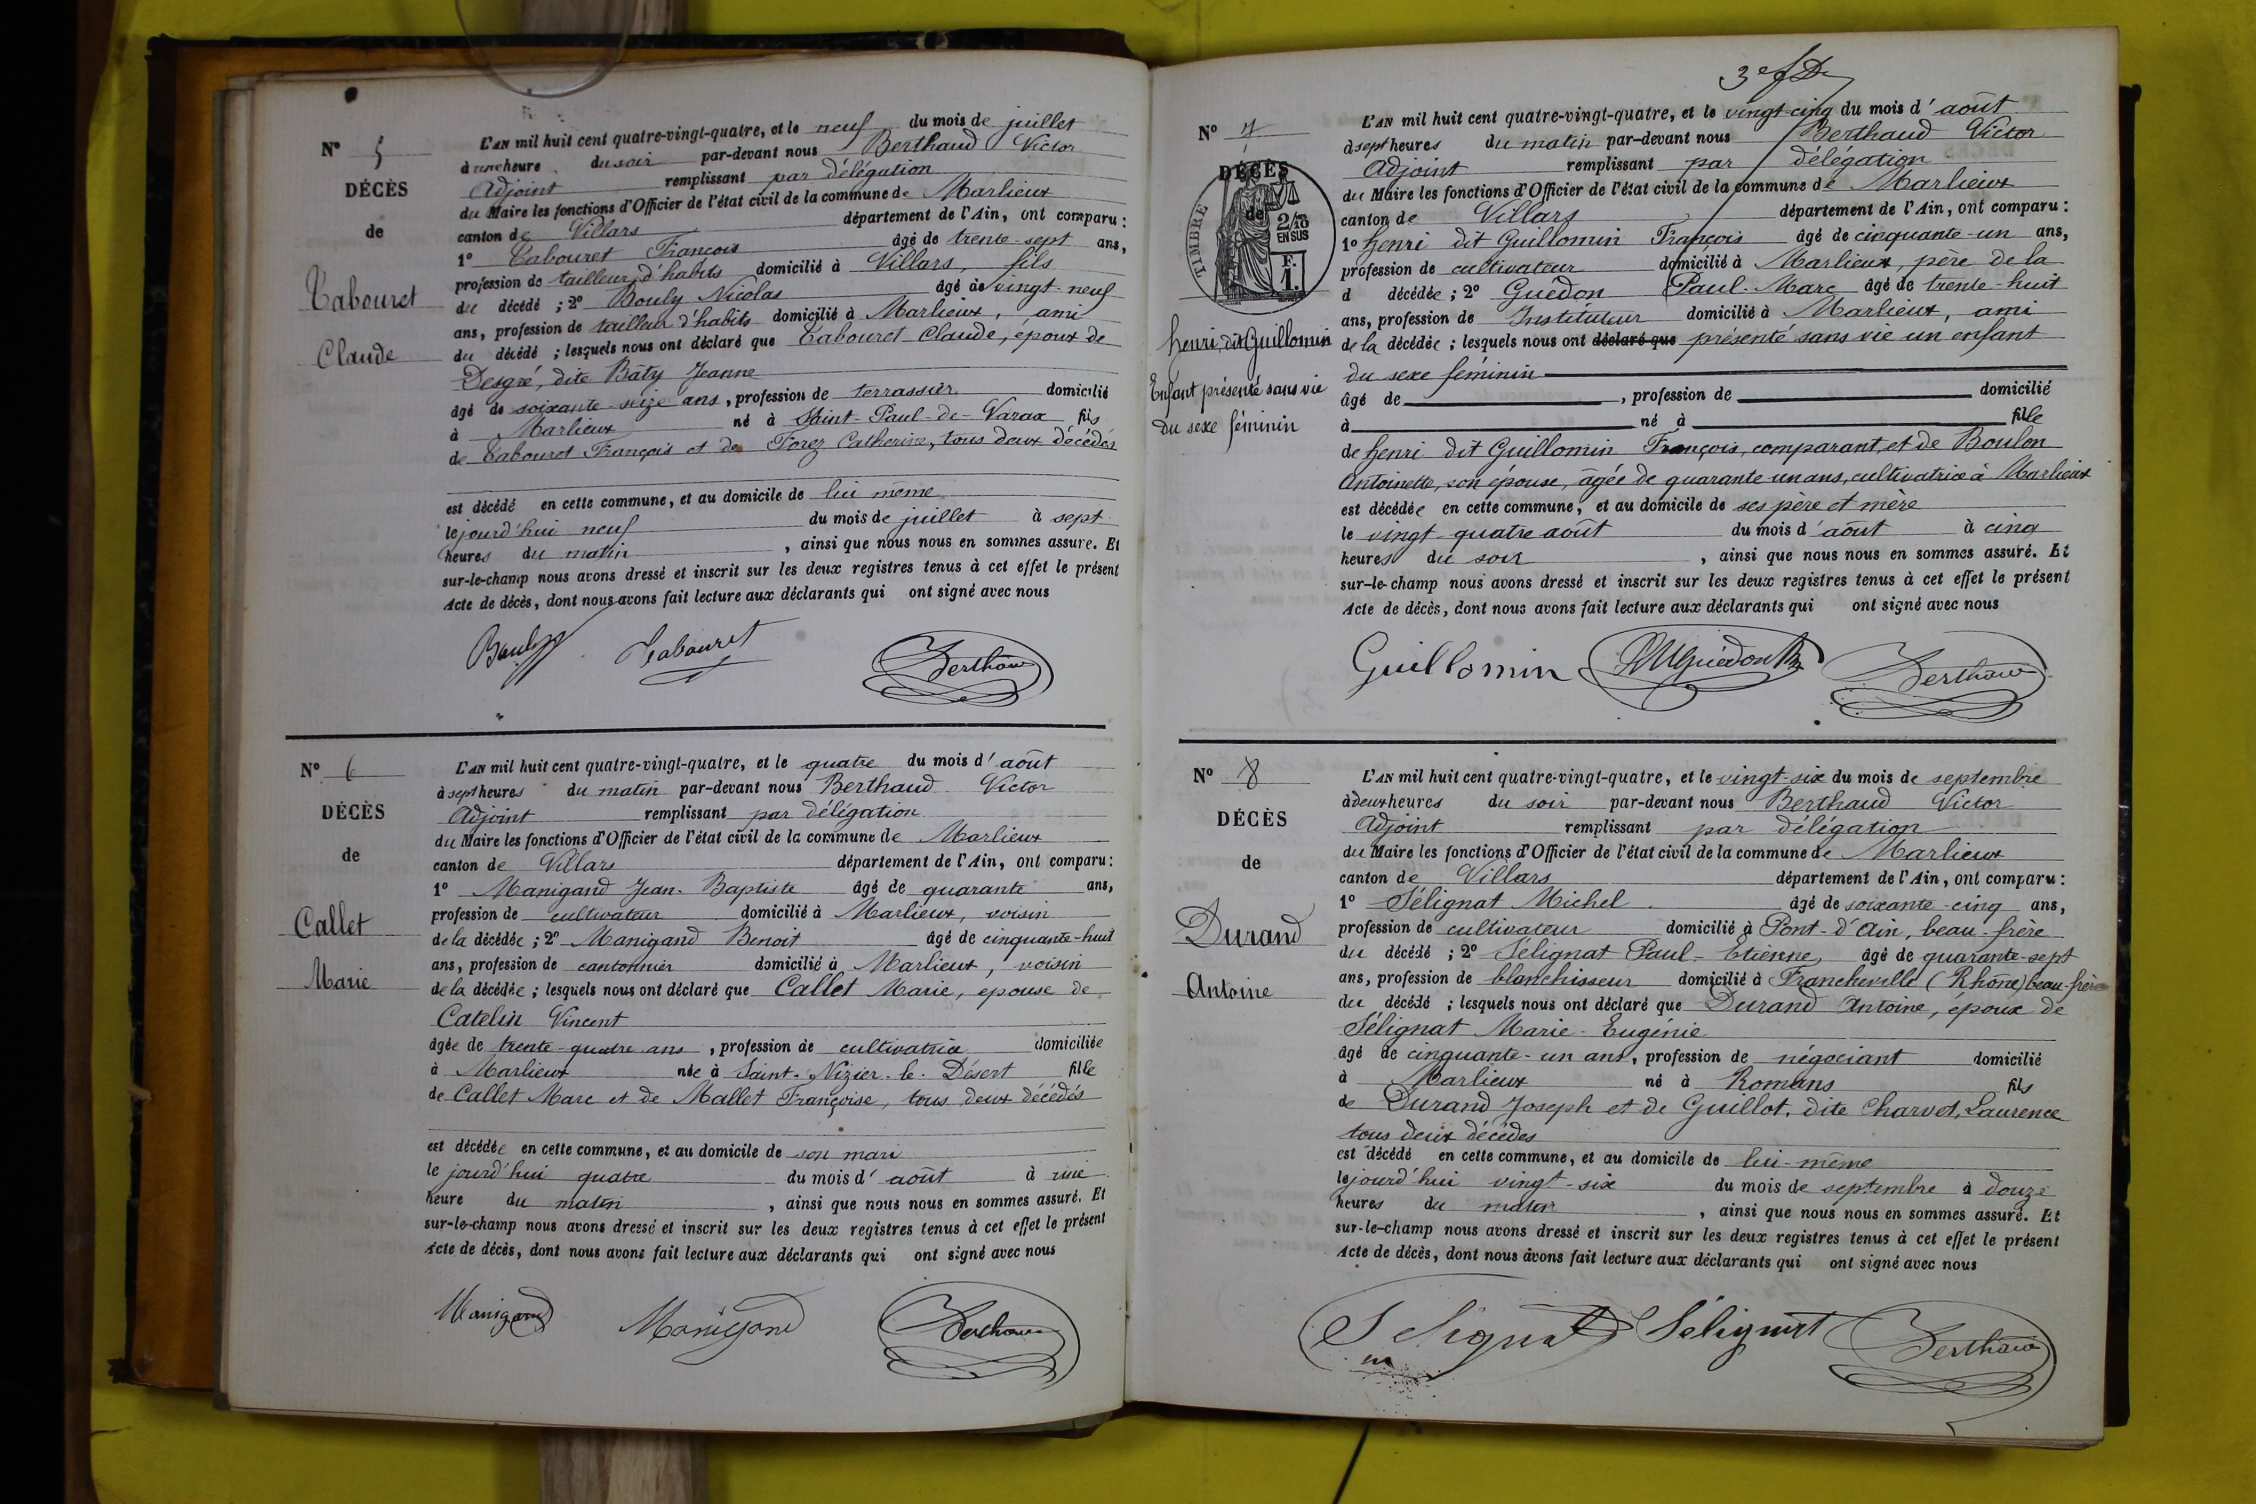 N° 5
DÉCÈS
de
Tabouret
Claude
L'AN mil huit cent quatre-vingt-quatre, et le neuf du mois de juillet
à une heure du soir par-devant nous Berthaud Victor
Adjoint remplissant par délégation
du Maire les fonctions d'Officier de l'état civil de la commune de Marlieux
canton de Villars département de l'Ain, ont comparu :
1° Tabouret François âgé de trente-sept ans,
profession de tailleur d'habits domicilié à Villars, fils
du décédé ; 2° Bouly Nicolas âgé de vingt-neuf
ans, profession de tailleur d'habits domicilié à Marlieux, ami
du décédé ; lesquels nous ont déclaré que Tabouret Claude, époux de
Desgré, dite Bâty Jeanne
âgé de soixante-seize ans, profession de terrassier domicilié
à Marlieux né à Saint-Paul-de-Varax fils
de Tabouret François et de Forez Catherine, tous deux décédés
est décédé en cette commune, et au domicile de lui même
le jourd'hui neuf du mois de juillet à sept
heures du matin, ainsi que nous nous en sommes assuré. Et
sur-le-champ nous avons dressé et inscrit sur les deux registres tenus à cet effet le présent
Acte de décès, dont nous avons fait lecture aux déclarants qui ont signé avec nous
Bouly Tabouret Berthaud
N° 6
DÉCÈS
de
Callet
Marie
L'AN mil huit cent quatre-vingt-quatre, et le quatre du mois d'août
à sept heures du matin par-devant nous Berthaud Victor
Adjoint remplissant par délégation
du Maire les fonctions d'Officier de l'état civil de la commune de Marlieux
canton de Villars département de l'Ain, ont comparu :
1° Manigand Jean-Baptiste âgé de quarante ans,
profession de cultivateur domicilié à Marlieux, voisin
de la décédée ; 2° Manigand Benoit âgé de cinquante-huit
ans, profession de cantonnier domicilié à Marlieux, voisin
de la décédée ; lesquels nous ont déclaré que Callet Marie, épouse de
Catelin Vincent
âgée de trente-quatre ans, profession de cultivatrice domiciliée
à Marlieux née à Saint-Nizier-le-Désert fille
de Callet Marc et de Mallet Françoise, tous deux décédés
est décédée en cette commune, et au domicile de son mari
le jourd'hui quatre du mois d'août à une
heure du matin, ainsi que nous nous en sommes assuré. Et
sur-le-champ nous avons dressé et inscrit sur les deux registres tenus à cet effet le présent
Acte de décès, dont nous avons fait lecture aux déclarants qui ont signé avec nous
Manigand Manigand Berthaud
N° 7
DÉCÈS
de
TIMBRE
2/10
EN SUS
F.
1.
henri, dit Guillomin
Enfant présenté sans vie
du sexe féminin
L'AN mil huit cent quatre-vingt-quatre, et le vingt-cinq du mois d'août
à sept heures du matin par-devant nous Berthaud Victor
Adjoint remplissant par délégation
du Maire les fonctions d'Officier de l'état civil de la commune de Marlieux
canton de Villars département de l'Ain, ont comparu :
1° henri dit Guillomin François âgé de cinquante-un ans,
profession de cultivateur domicilié à Marlieux, père de la
d décédée ; 2° Guédon Paul-Marc âgé de trente-huit
ans, profession de Instituteur domicilié à Marlieux, ami
de la décédée ; lesquels nous ont déclaré que présenté sans vie un enfant
du sexe féminin
âgé de , profession de domicilié
à né à fille
de henri dit Guillomin François, comparant, et de Boulon
Antoinette, son épouse, âgée de quarante un ans, cultivatrice à Marlieux
est décédée en cette commune, et au domicile de ses père et mère
le vingt-quatre août du mois d'août à cinq
heures du soir, ainsi que nous nous en sommes assuré. Et
sur-le-champ nous avons dressé et inscrit sur les deux registres tenus à cet effet le présent
Acte de décès, dont nous avons fait lecture aux déclarants qui ont signé avec nous
Guillomin PMGuédon Berthaud
N° 8
DÉCÈS
de
Durand
Antoine
L'AN mil huit cent quatre-vingt-quatre, et le vingt-six du mois de septembre
à deux heures du soir par-devant nous Berthaud Victor
Adjoint remplissant par délégation
du Maire les fonctions d'Officier de l'état civil de la commune de Marlieux
canton de Villars département de l'Ain, ont comparu :
1° Sélignat Michel âgé de soixante-cinq ans,
profession de cultivateur domicilié à Pont-d'Ain, beau-frère
du décédé ; 2° Sélignat Paul-Etienne, âgé de quarante-sept
ans, profession de blanchisseur domicilié à Francheville (Rhône) beau-frère
du décédé ; lesquels nous ont déclaré que Durand Antoine, époux de
Sélignat Marie-Eugénie
âgé de cinquante-un ans, profession de négociant domicilié
à Marlieux né à Romans fils
de Durand Joseph et de Guillot, dite Charvet, Laurence
tous deux décédés
est décédé en cette commune, et au domicile de lui-même
le jourd'hui vingt-six du mois de septembre à douze
heures du matin, ainsi que nous nous en sommes assuré. Et
sur-le-champ nous avons dressé et inscrit sur les deux registres tenus à cet effet le présent
Acte de décès, dont nous avons fait lecture aux déclarants qui ont signé avec nous
Sélignat Sélignat Berthaud